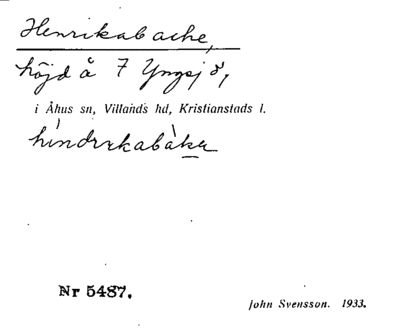 Henrikabacke,
höjd å 7 Yngsjö,
i Åhus sn, Villands hd, Kristianstads l.
híndrıkabàka
Nr 5487.
John Svensson. 1933.